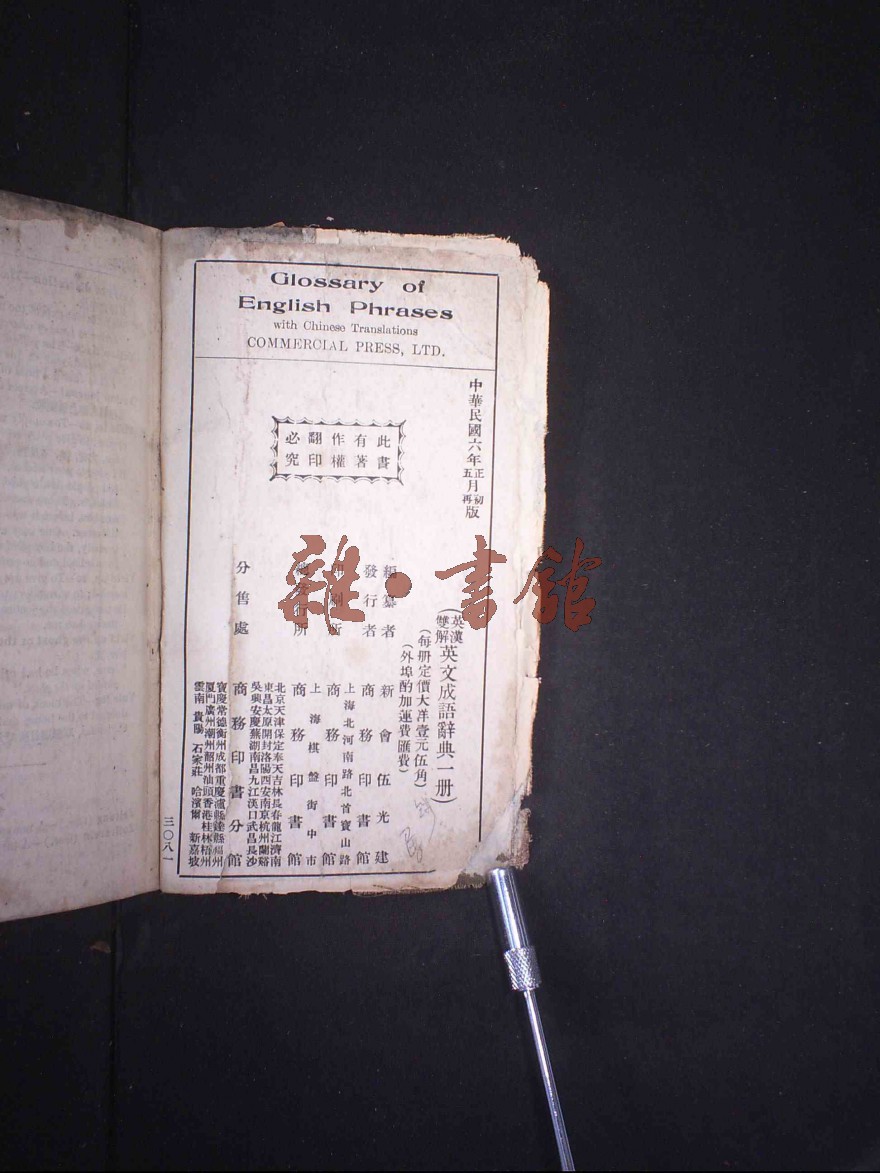 Glossary of
English Phrases
with Chinese Translations
COMMERCIAL PRESS, LTD.
中華民國六年正五月初再版
此書
有著
作權
翻印
必究
(英漢雙解英文成語辭典一册)
(每册定價大洋壹元伍角)
(外埠酌加運費匯費)
編纂者 新會伍光建
發行者 商務印書館
上海北河南路北首寶山路
印刷所 商務印書館
上海棋盤街中市
總發行所 商務印書館
北京天津保定奉天吉林長春龍江濟南
東昌太原開封洛陽西安南京杭州蘭谿
吳興安慶蕪湖南昌九江漢口武昌長沙
分售處 商務印書分館
寶慶常德衡州成都重慶瀘縣達縣福州
厦門廣州潮州韶州汕頭香港桂林梧州
雲南貴陽石家莊哈濱爾新嘉坡
三〇八一
雜·書館